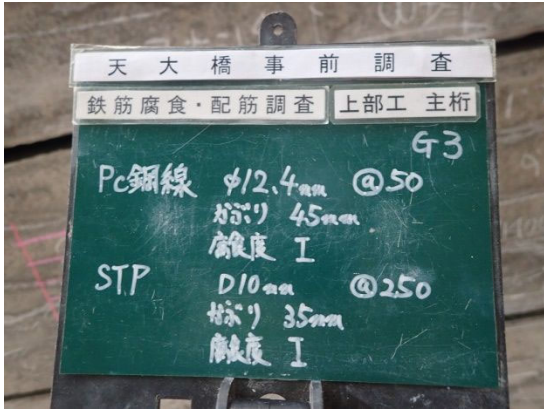 天大橋事前調査
鉄筋腐食・配筋調査 上部工 主桁
G3
Pc鋼線 φ12.4mm @50
かぶり 45mm
腐食度 I
STP D10mm @250
かぶり 35mm
腐食度 I